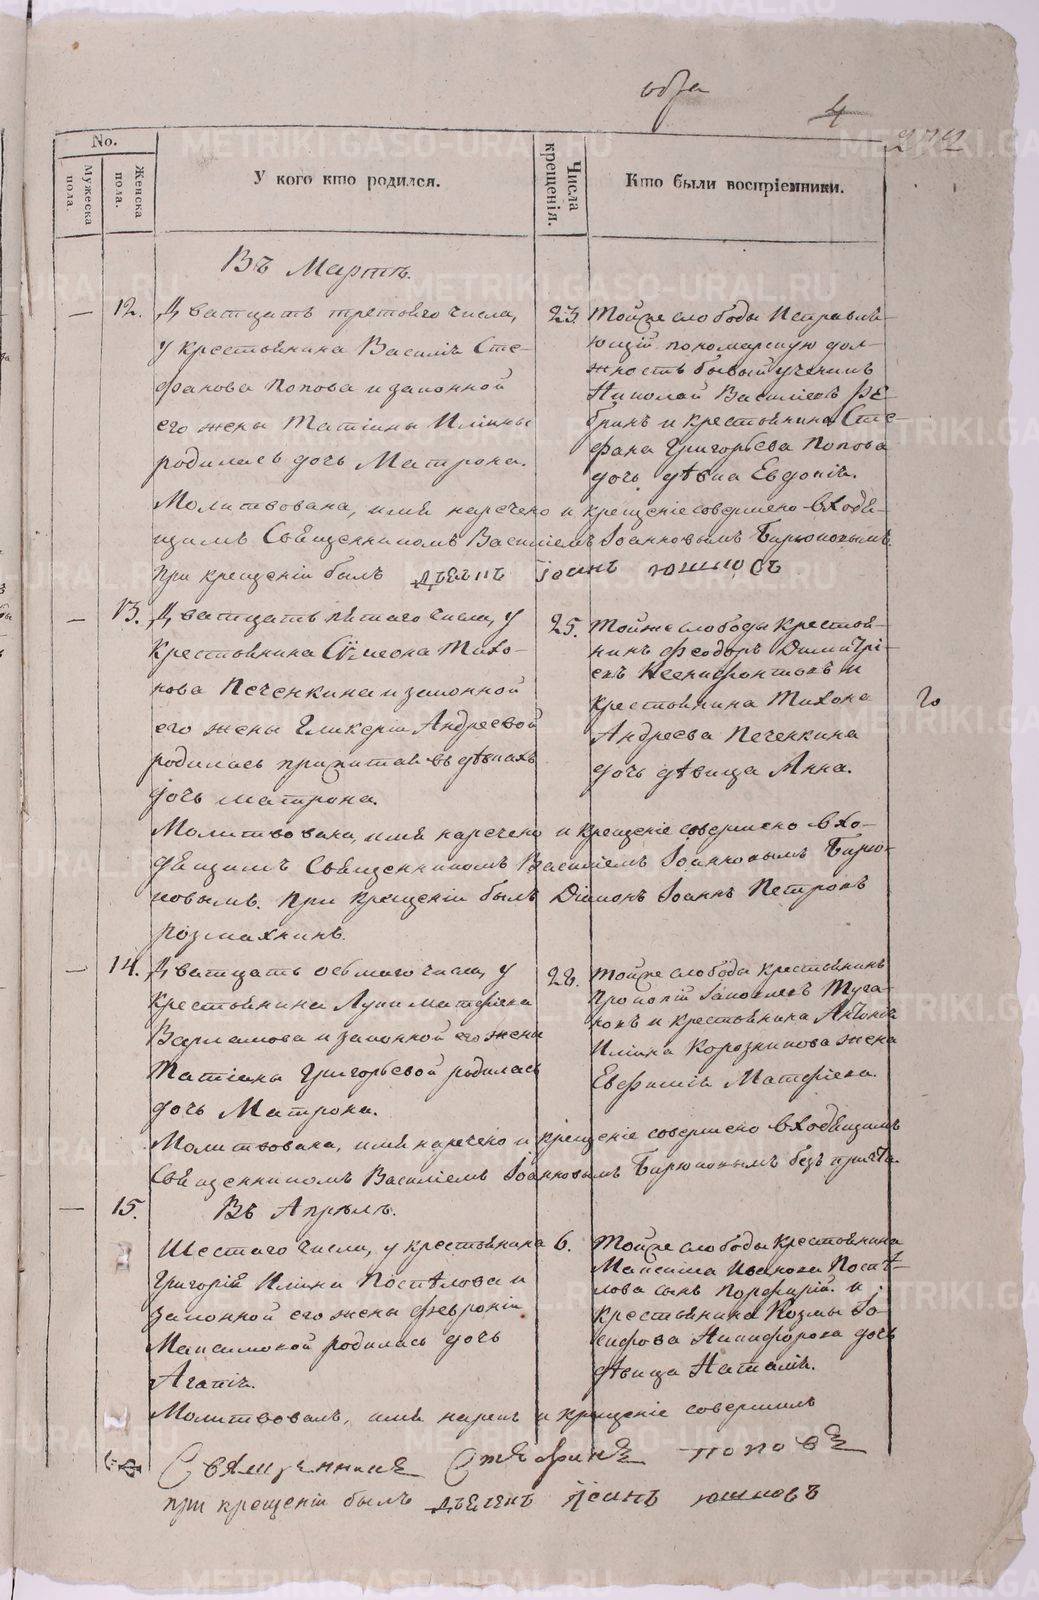 4
272
No.
Мужеска пола.
Женска пола.
У кого кто родился.
Числа крещенія.
Кто были воспріемники.
Въ Мартѣ.
12. Дватцать третьяго числа,
у крестьянина Василія Сте-
фанова Попова и законной
его жены Татіаны Иліины
родилась дочь Матрона.
23. Тойже слободы Исправля-
ющій пономарскую дол-
жность бывый ученикъ
Николай Василіевъ
и крестьянина Сте-
фана Григорьева Попова
дочь дѣвка Евдокія.
Молитвована, имя наречено и крещеніе совершено входя-
щимъ Священникомъ Василіемъ Іоанновымъ Бирюковымъ.
При крещеніи былъ дьячекъ Іоанъ Юшковъ
13. Дватцать пятаго числа, у
Крестьянина Сѵмеона Тихо-
нова Печенкина и законной
его жены Гликеріи Андреевой
родилась дѣвкахъ
дочь Матрона.
25. Тойже слободы Крестья-
нинъ Феодоръ Димитрі-
евъ Ксенофонтовъ и
крестьянина Тихона
Андреева Печенкина
дочь дѣвица Анна.
Молитвована, имя наречено и крещеніе совершено вхо-
дящимъ Священникомъ Василіемъ Іоанновымъ Бирю-
ковымъ. При крещеніи былъ Діаконъ Іоаннъ Петровъ
Розмахнинъ.
14. Дватцать осьмаго числа, у
крестьянина Луки Матфіева
Варламова и законной его жены
Татіаны Григорьевой родилась
дочь Матрона.
28. Тойже слободы крестьянинъ
Прокопій Іаковлевъ Туга-
новъ и крестьянина Антонія
Иліина Корозникова жена
Евфимія Матфіева.
Молитвована, имя наречено и крещеніе совершено входящимъ
Священникомъ Василіемъ Іоанновымъ Бирюковымъ безъ причта.
15. Въ Апрѣлѣ.
Шестаго числа, у крестьянина
Григорія Иліина Поспѣлова и
законной его жены Февроніи
Максимовой родилась дочь
Агапія.
6. Тойже слободы Крестьянина
Максима Иванова Поспѣ-
лова сынъ Порфирій. и
крестьянина Козмы Іо-
сифова Никифорова дочь
дѣвица Наталія.
Молитвовалъ, имя нарекъ и крещеніе совершилъ
Священникъ Стефанъ Поповъ
при крещеніи былъ дьячекъ Іоанъ Юшковъ
METRIKI.GASO-URAL.RU